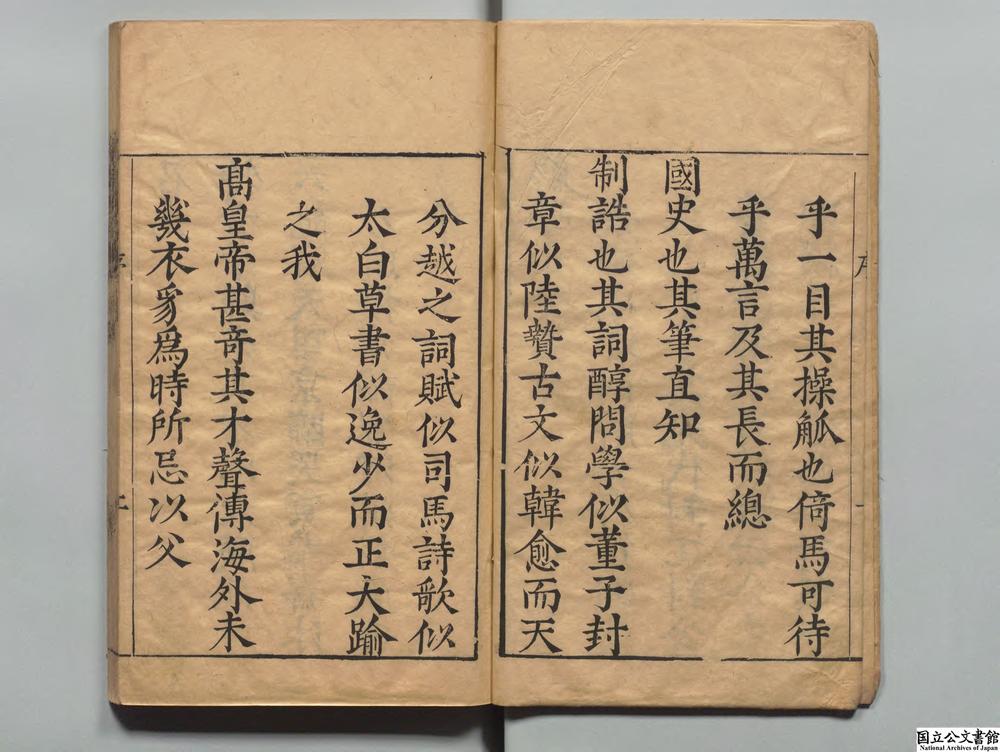 乎一目其操觚也倚馬可待
乎萬言及其長而總
國史也其筆直知
制誥也其詞醇問學似董子封
章似陸贄古文似韓愈而天
分越之詞賦似司馬詩歌似
太白草書似逸少而正大踰
之我
髙皇帝甚竒其才聲傳海外未
幾衣㣲爲時所忌以父
国立公文書館
National Archives of Japan